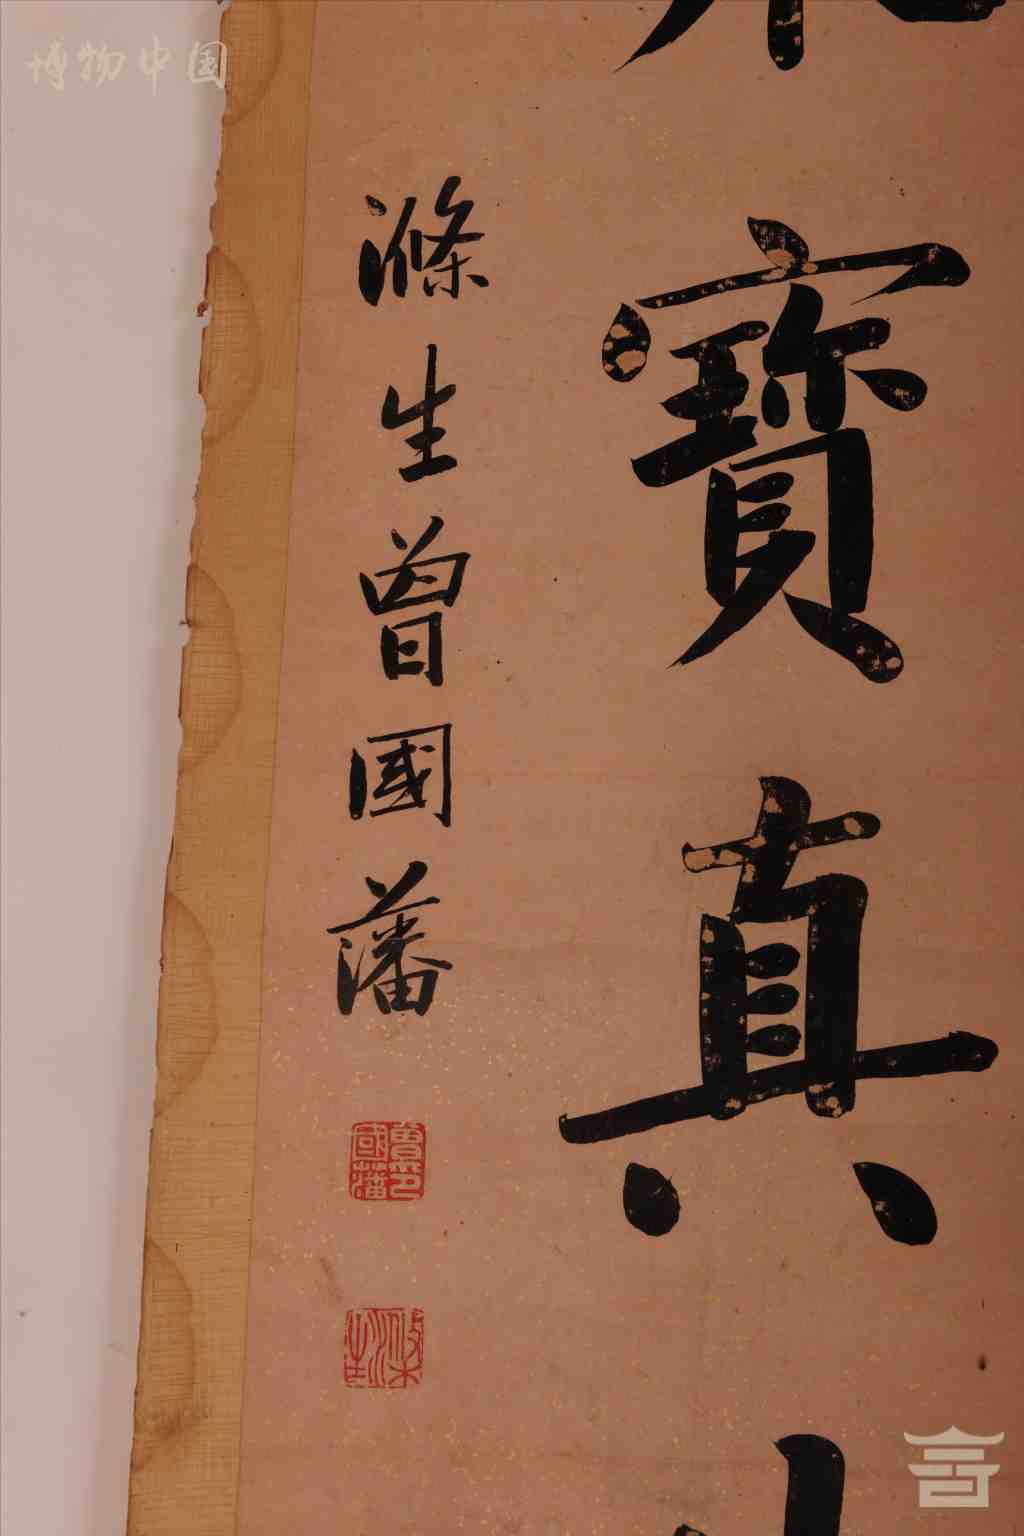 寶真
滌生曾國藩
曾國藩印
滌生
博物中国